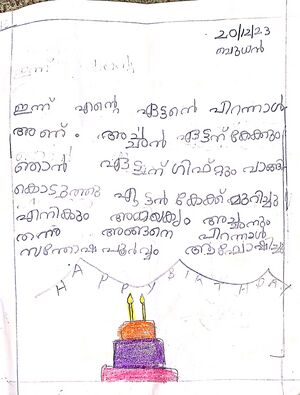 20/12/23
ബുധൻ
ഇന്ന് എന്റെ ഏട്ടന്റെ പിറന്നാൾ
ആണ്. അച്ഛൻ ഏട്ടന് കേക്കും
ഞാൻ ഏട്ടന് ഗിഫ്റ്റും വാങ്ങി
കൊടുത്തു ഏട്ടൻ കേക്ക് മുറിച്ചു
എനിക്കും അമ്മയ്ക്കും അച്ഛനും
തന്നു അങ്ങനെ പിറന്നാൾ
സന്തോഷപൂർവ്വം ആഘോഷിച്ചു
HAPPY BIRTHDAY